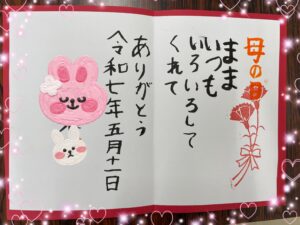 母の日
まま
いつも
いろいろして
くれて
ありがとう
令和七年五月十一日